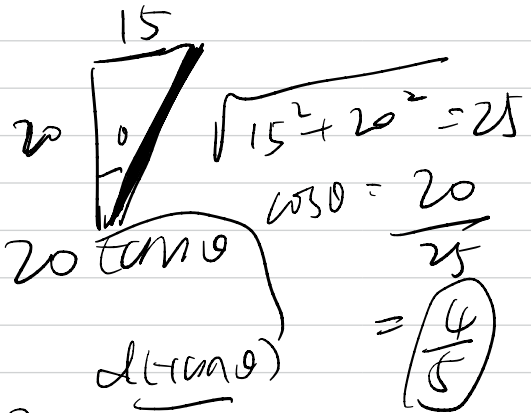 15
20 θ √15²+20² = 25
cosθ = 20/25
20 tanθ
= 4/5
d(tanθ)